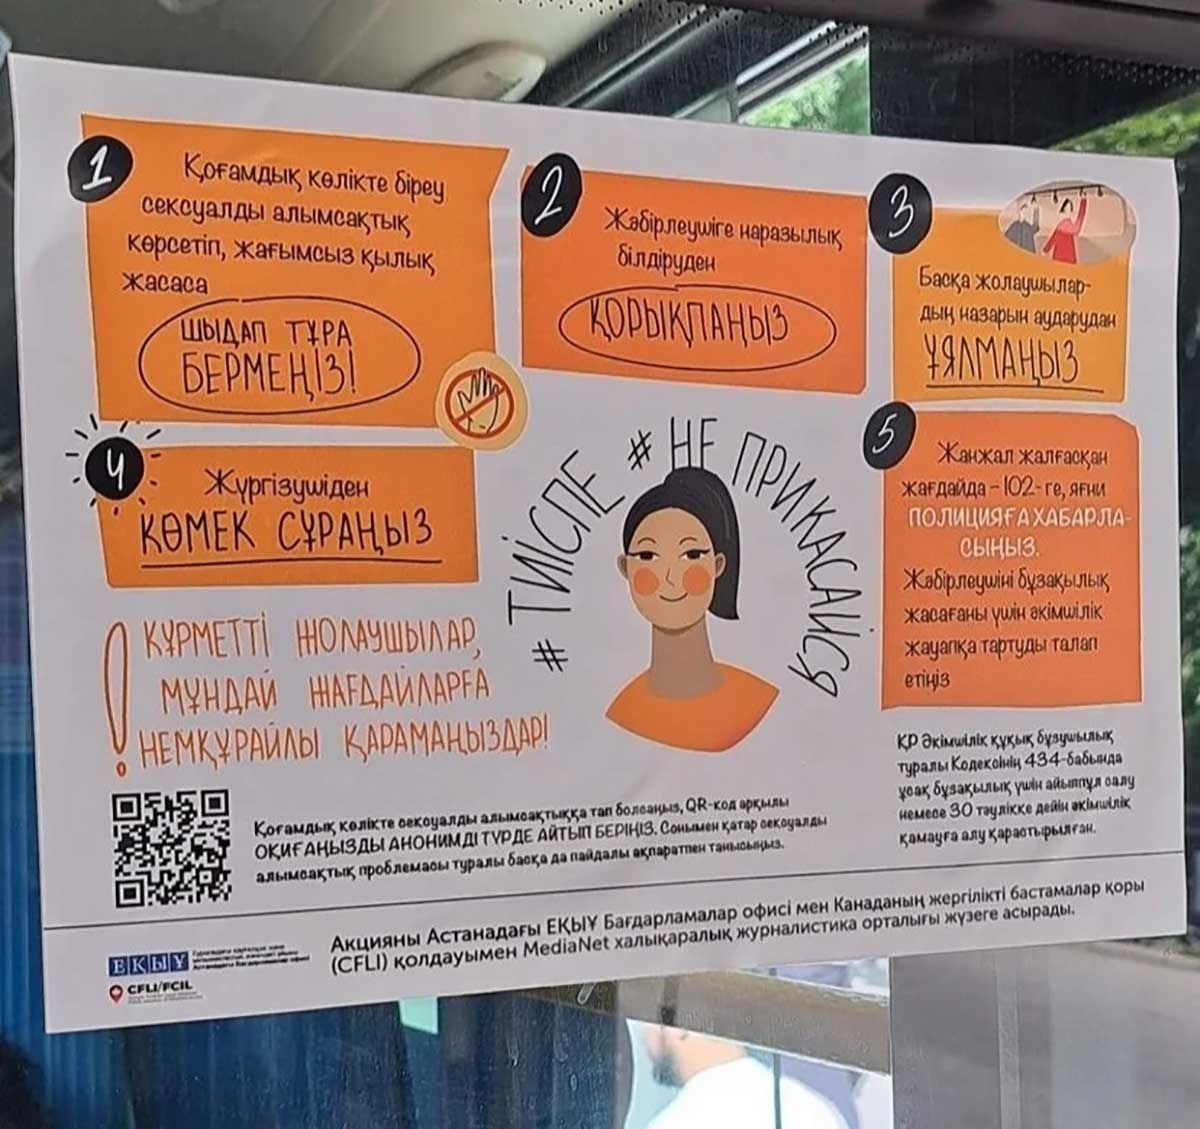 1
Қоғамдық көлікте біреу
сексуалды алымсақтық
көрсетіп, жағымсыз қылық
жасаса
ШЫДАП ТҰРА
БЕРМЕҢІЗ!
2
Жәбірлеушіге наразылық
білдіруден
ҚОРЫҚПАҢЫЗ
3
Басқа жолаушылар-
дың назарын аударудан
ҰЯЛМАҢЫЗ
4
Жүргізушіден
КӨМЕК СҰРАҢЫЗ
5
Жанжал жалғасқан
жағдайда - 102-ге, яғни
ПОЛИЦИЯҒА ХАБАРЛА-
СЫҢЫЗ.
Жәбірлеушіні бұзақылық
жасағаны үшін әкімшілік
жауапқа тартуды талап
етіңіз
# ТИІСПЕ # НЕ ПРИКАСАЙСЯ
! ҚҰРМЕТТІ ЖОЛАУШЫЛАР,
МҰНДАЙ ЖАҒДАЙЛАРҒА
НЕМҚҰРАЙЛЫ ҚАРАМАҢЫЗДАР!
ҚР Әкімшілік құқық бұзушылық
туралы Кодексінің 434-бабында
ұсақ бұзақылық үшін айыппұл салу
немесе 30 тәулікке дейін әкімшілік
қамауға алу қарастырылған.
Қоғамдық көлікте сексуалды алымсақтыққа тап болсаңыз, QR-код арқылы
ОҚИҒАҢЫЗДЫ АНОНИМДІ ТҮРДЕ АЙТЫП БЕРІҢІЗ. Сонымен қатар сексуалды
алымсақтық проблемасы туралы басқа да пайдалы ақпаратпен танысыңыз.
ЕҚЫҰ
CFLI/FCIL
Акцияны Астанадағы ЕҚЫҰ Бағдарламалар офисі мен Канаданың жергілікті бастамалар қоры
(CFLI) қолдауымен MediaNet халықаралық журналистика орталығы жүзеге асырады.